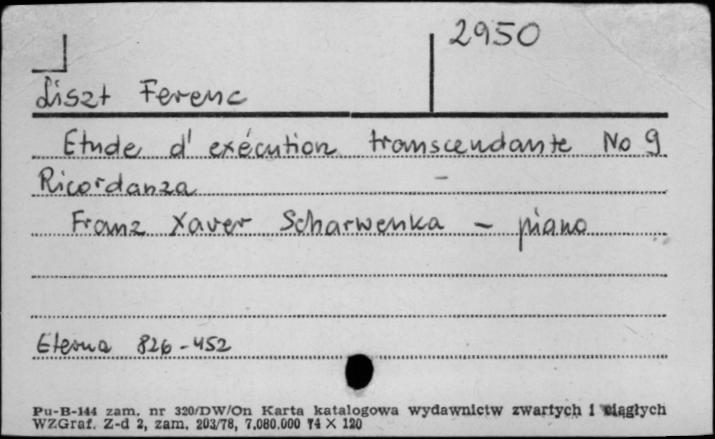 2950
Liszt Ferenc
Etude d'exécution transcendante No 9
Ricordanza
Franz Xaver Scharwenka – piano
Eterna 826-452
Pu-B-144 zam. nr 320/DW/On Karta katalogowa wydawnictw zwartych i ciągłych
WZGraf. Z-d 2, zam. 203/78, 7.080.000 74 X 120